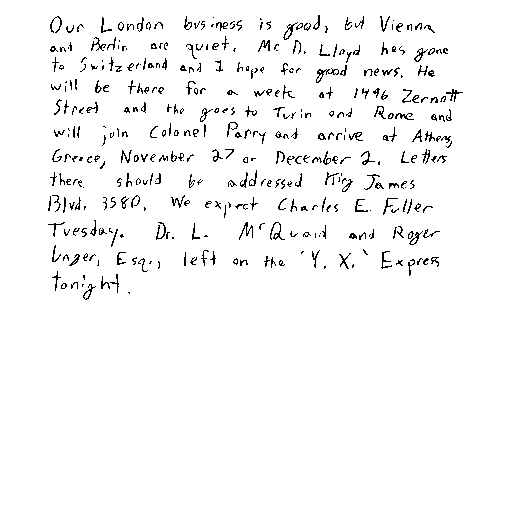 Our London business is good, but Vienna
and Berlin are quiet. Mr D. Lloyd has gone
to Switzerland and I hope for good news. He
will be there for a week at 1496 Zermott
Street and the goes to Turin and Rome and
will join Colonel Parry and arrive at Athens,
Greece, November 27 or December 2. Letters
there should be addressed King James
Blvd. 3580. We expect Charles E. Fuller
Tuesday. Dr. L. McQuaid and Roger
Unger, Esq., left on the 'Y. X.' Express
tonight.